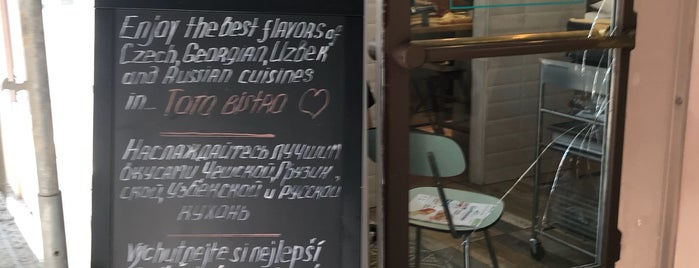 Enjoy the best flavors of
Czech, Georgian, Uzbek
and Russian cuisines
in... Toto Bistro ♡
Наслаждайтесь лучшим
вкусами Чешской, Грузин,
ской, Узбекской и Русской
кухонь
Vychutnejte si nejlepší